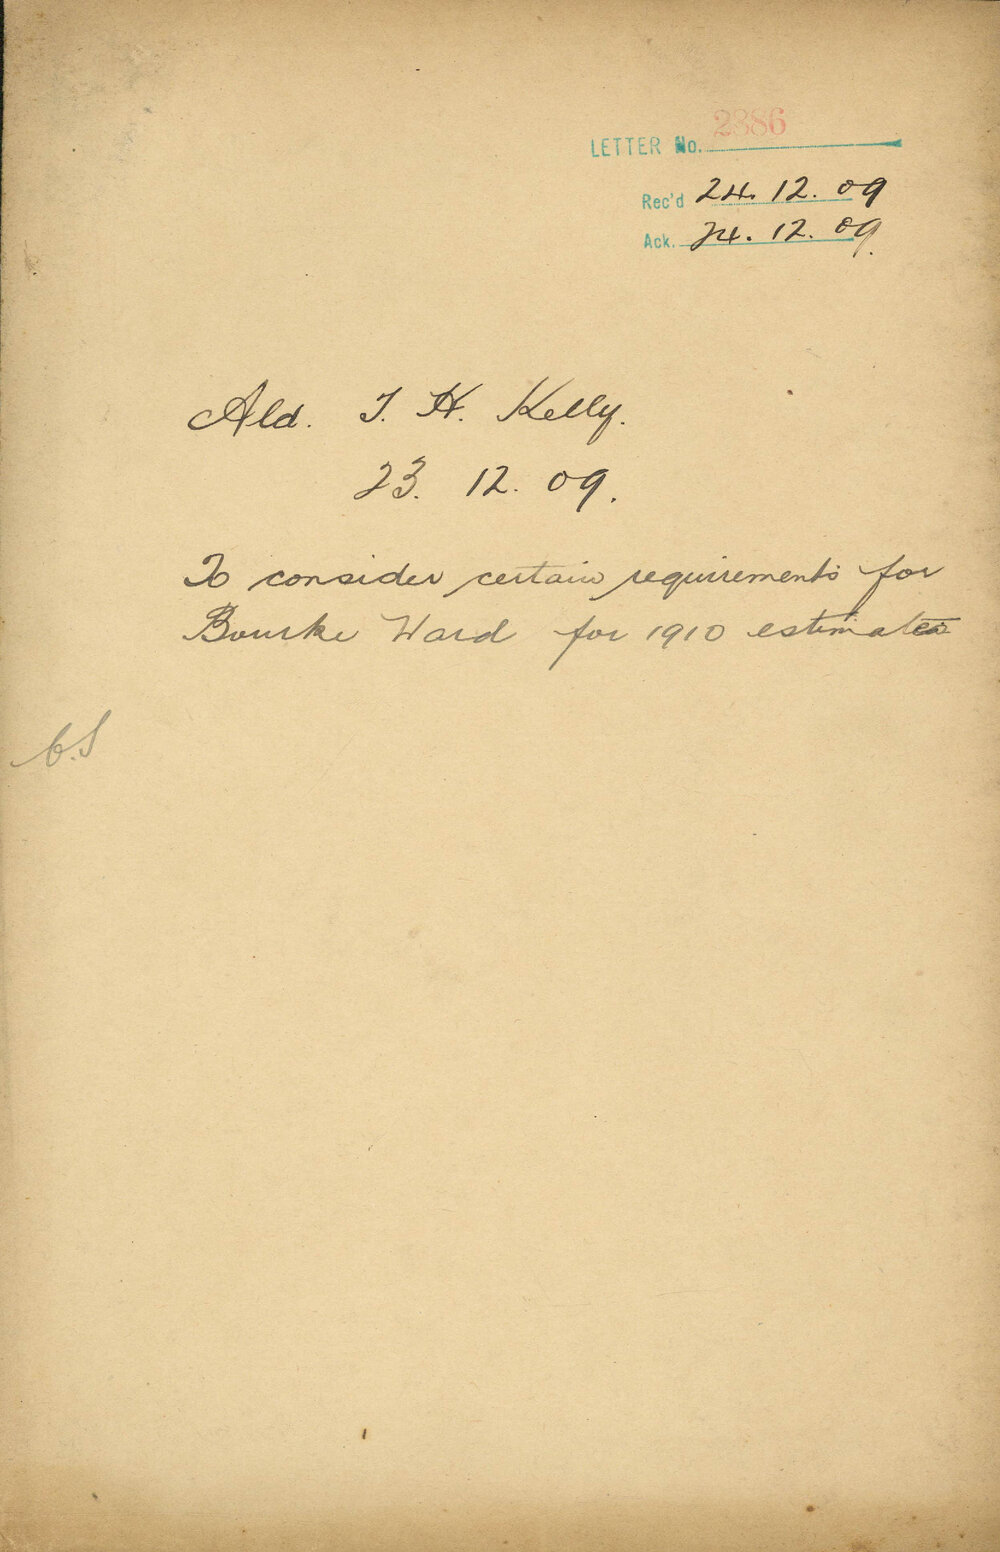 LETTER No. 2386
Rec'd 24.12.09
Ack. 24.12.09.
Ald. T. H. Kelly.
23. 12. 09.
To consider certain requirements for
Bourke Ward for 1910 estimates
C.S